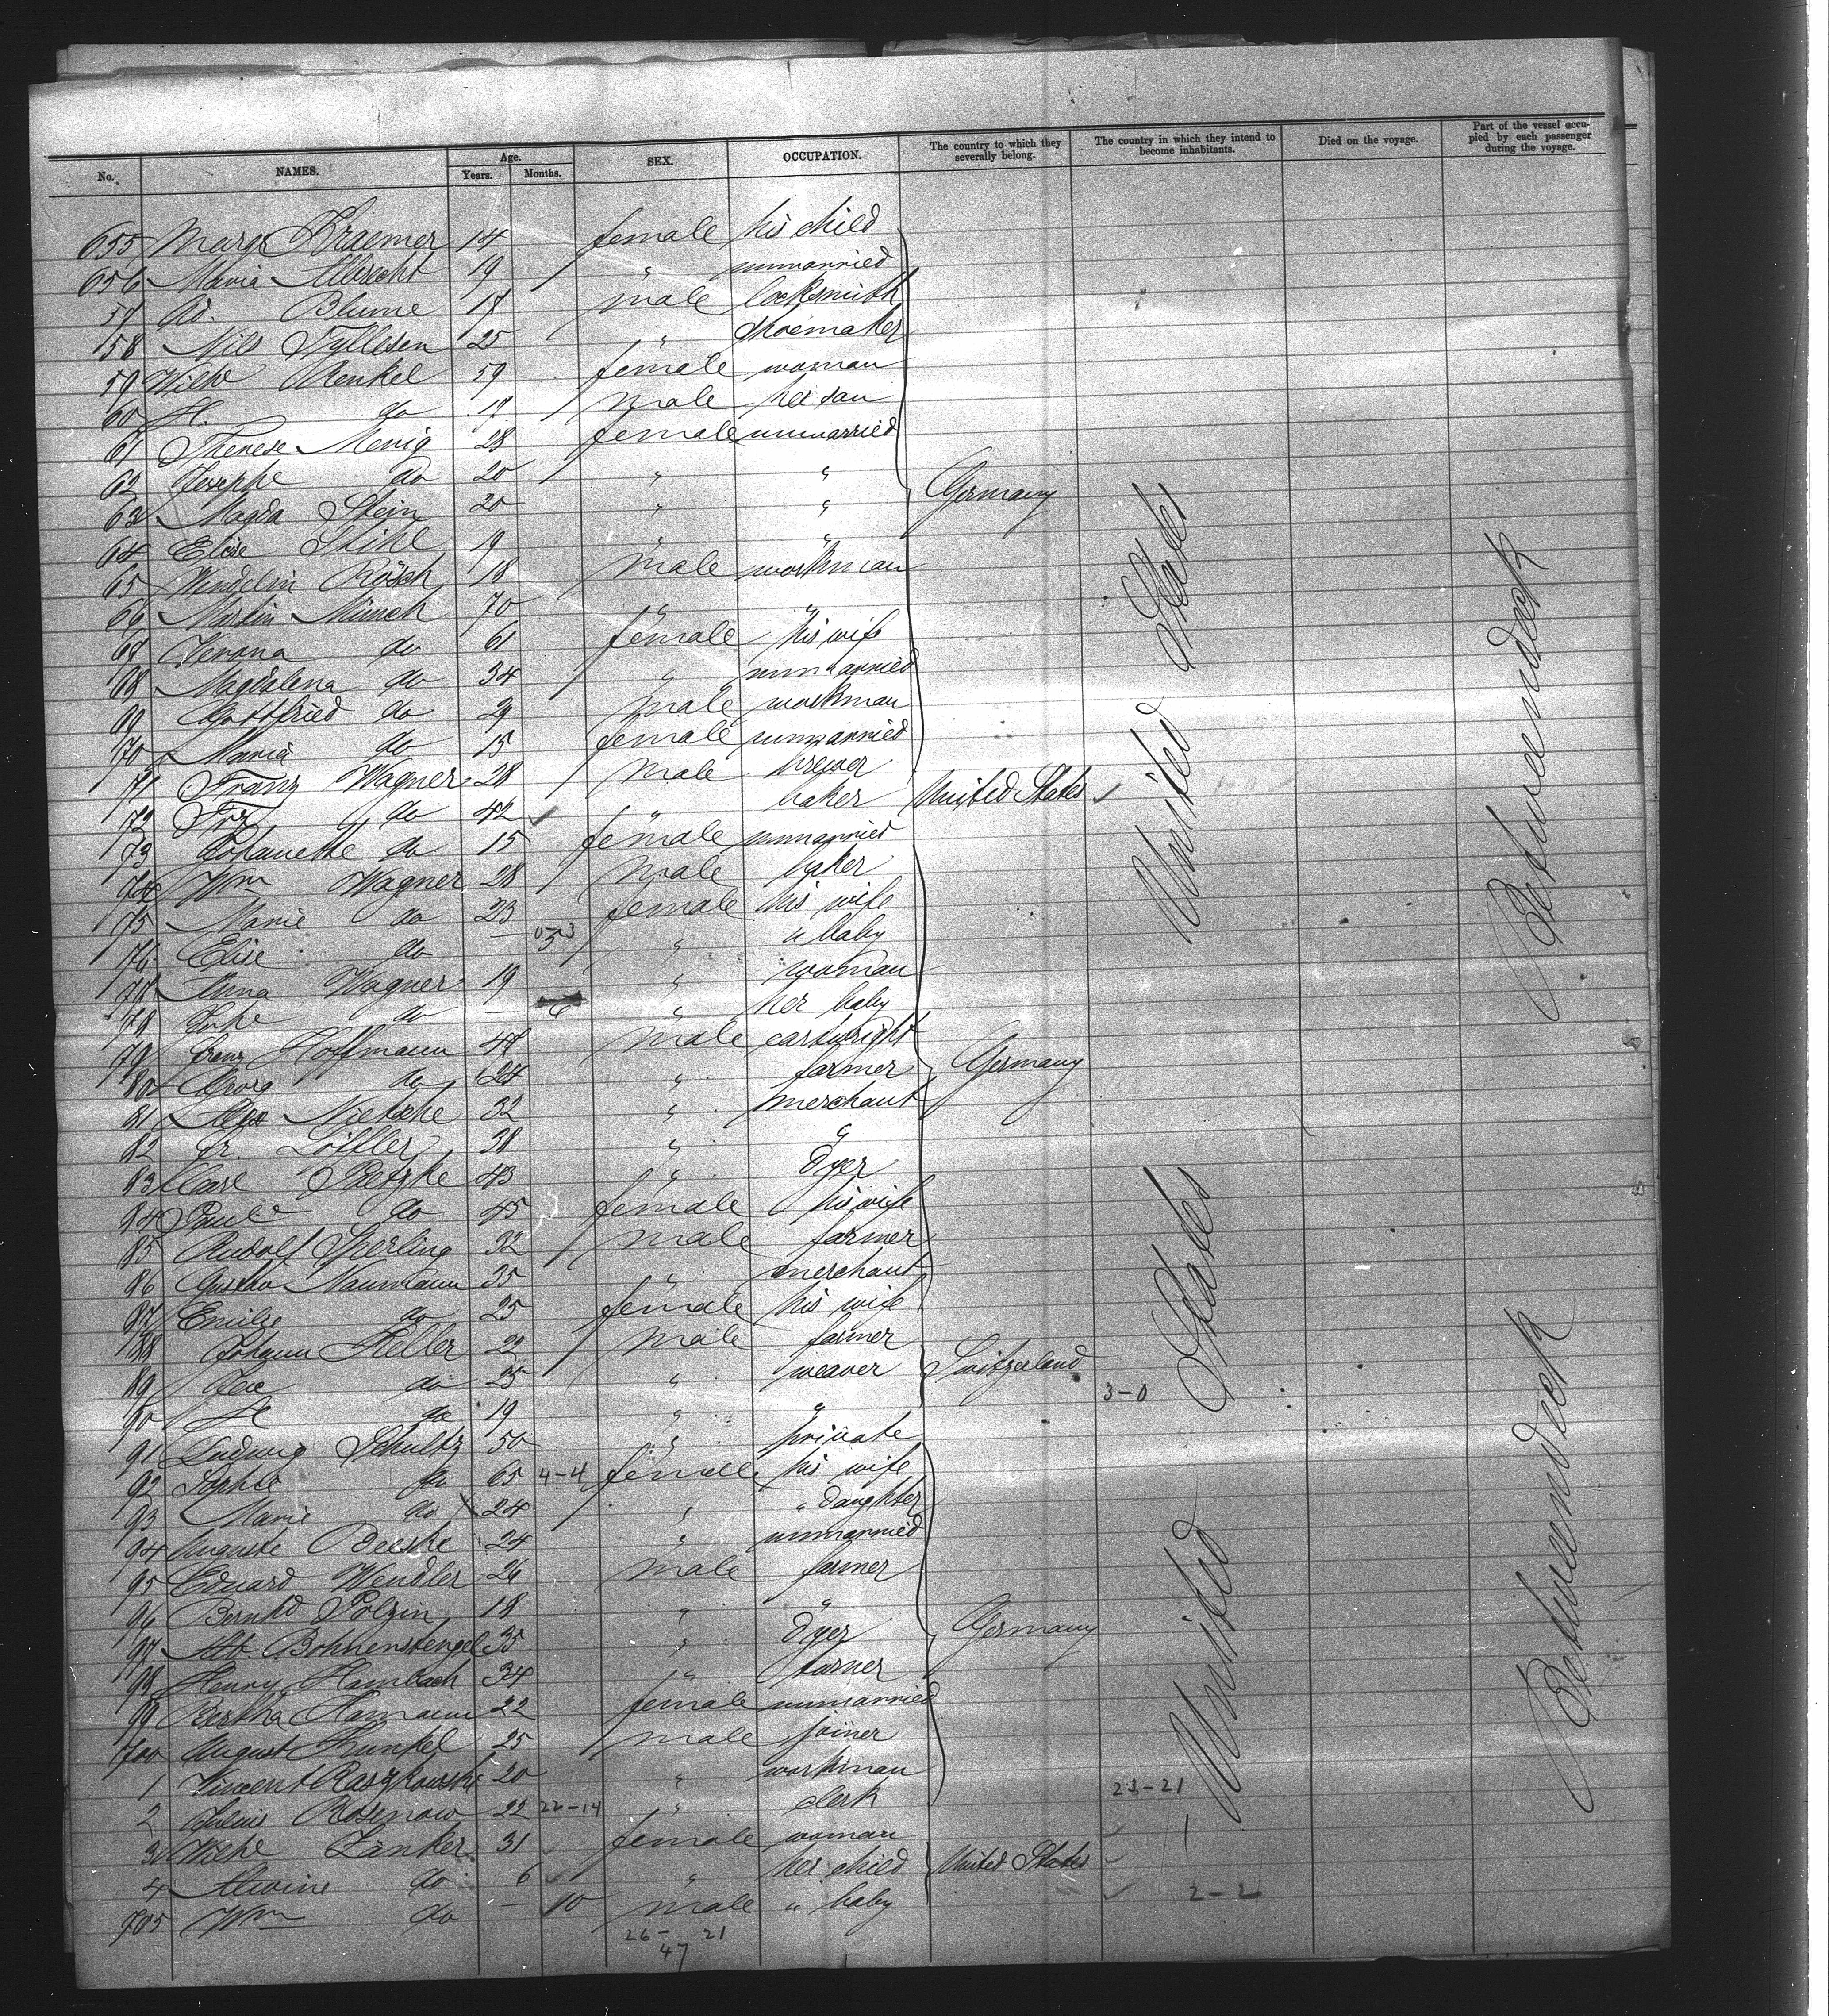 No. NAMES. Age. Years. Months. SEX. OCCUPATION. The country to which they severally belong. The country in which they intend to become inhabitants. Died on the voyage. Part of the vessel occupied by each passenger during the voyage.
655 Marg. Kraemer 14 female his child
656 Maria Albrecht 19 " unmarried
57 Ad. Blume 17 male locksmith
58 Nils Tyllesen 25 " shoemaker
59 Wilhe Menkel 59 female woman
60 H. do 17 male her son
61 Therese Menig 28 female unmarried
62 Josephe do 20 " "
63 Magda Stein 20 " " Germany
64 Elise Stihl 19 " "
65 Wendelin Rösch 18 male workman
66 Martin Münch 70 " "
67 Verona do 61 female his wife
68 Magdalena do 34 " unmarried
69 Gottfried do 29 male workman
70 Maria do 15 female unmarried
71 Franz Wagner 28 male brewer
72 Frz do 42 " baker United States
73 Johanette do 15 female unmarried
74 Wm Wagner 28 male baker
75 Marie do 23 female his wife
76 Elise do — 5 " " baby
77 Anna Wagner 19 " woman
78 do — 6 " her baby
79 Franz Hoffmann 47 male cartwright
80 Georg do 24 " farmer Germany
81 Alex Nietsche 32 " merchant
82 Fr. Löffler 38 " "
83 Carl Paetzke 43 " dyer
84 Paule do 45 female his wife
85 Rudolf Sperling 32 male farmer
86 Gustav Naumann 35 " merchant
87 Emilie do 25 female his wife
88 Johann Heller 29 male farmer
89 do 25 " weaver Switzerland
3-0
90 H do 19 " "
91 Ludwig Schultz 50 " private
92 Sophie do 65 4-4 female his wife
93 Marie do 24 " " daughter
94 Auguste Beeske 24 " unmarried
95 Eduard Wendler 26 male farmer
96 Bernhd Polzin 18 " "
97 Alb. Bohnenstengel 35 " dyer Germany
98 Henry Hambach 34 " turner
99 Bertha Hamann 22 female unmarried
700 August Kunkel 25 male joiner
1 Vincent Raszkowski 20 " workman
23-21
2 Julius Rosenow 22 22-14 " clerk
3 Wilhe Länker 31 female woman
4 Alwine do 6 " her child United States
705 Wm do — 10 male " baby
2-2
26-21
47
United States
United States
Betweendeck
Betweendeck